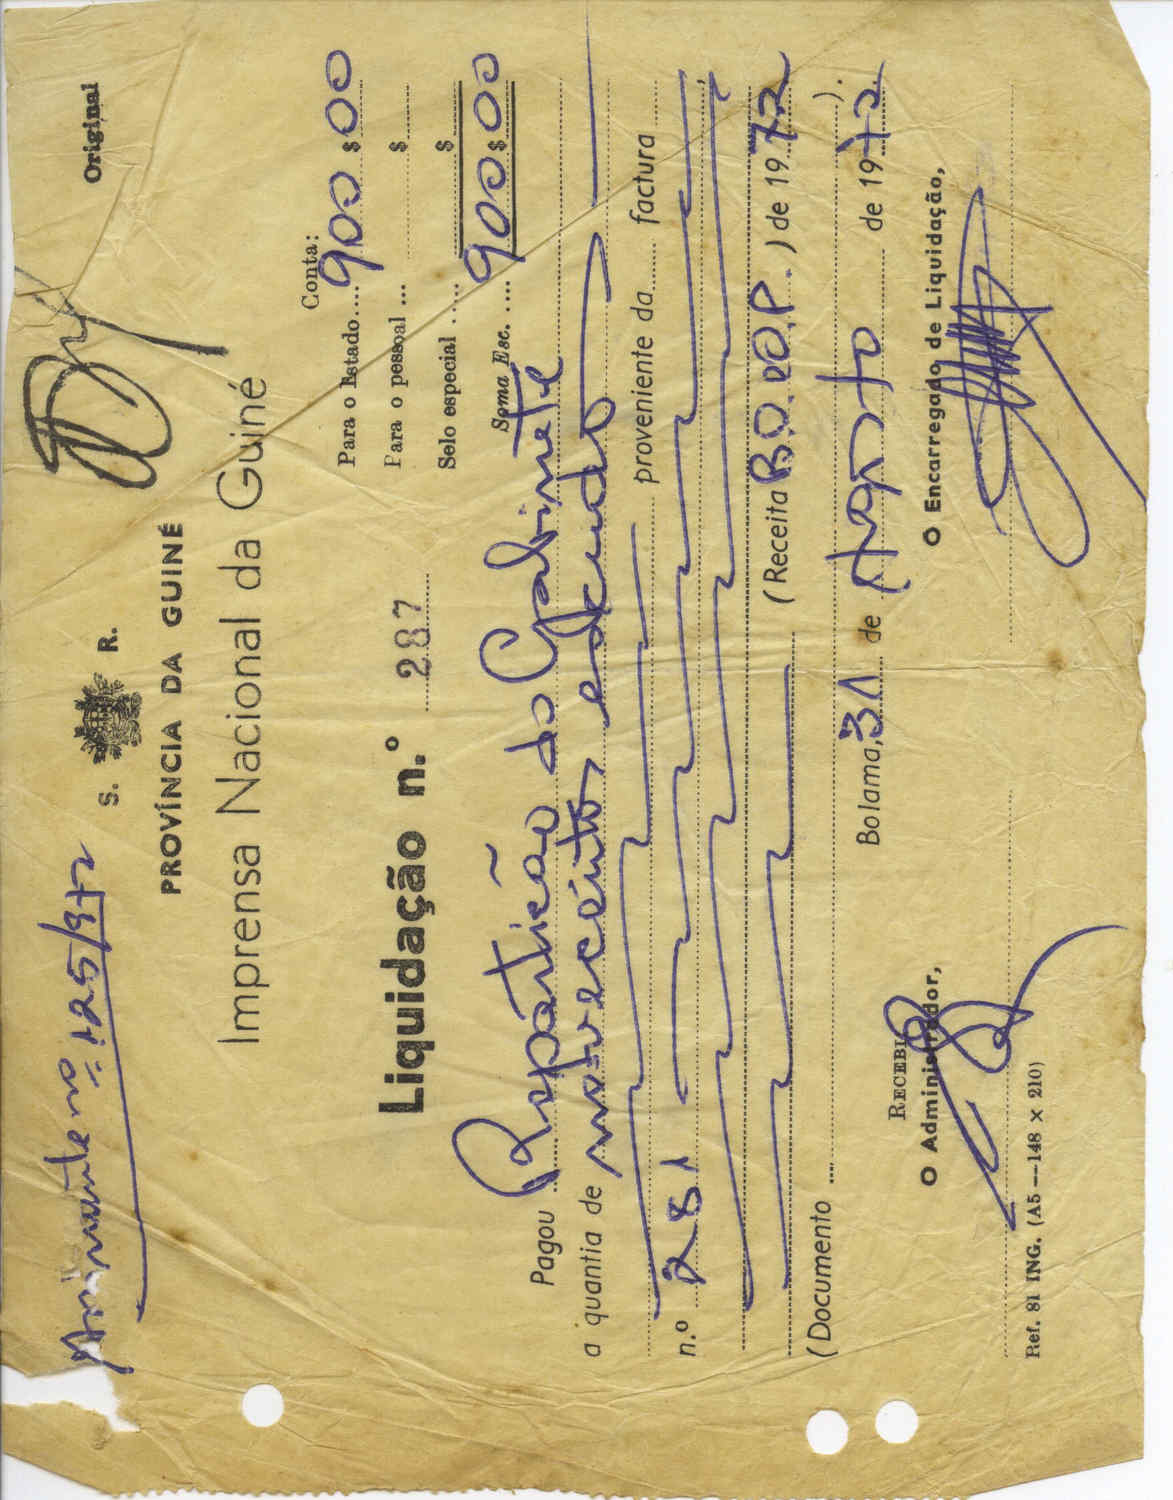 Original
Assinante nº 125/972
S. R.
PROVÍNCIA DA GUINÉ
Imprensa Nacional da Guiné
Conta:
Para o Estado.... 900 $ 00
Para o pessoal ... $
Selo especial .... $
Soma Esc. .... 900 $ 00
Liquidação n.º 287
Pagou Repartição do Gabinete
a quantia de novecentos escudos
proveniente da factura
n.º 281
(Receita B.O. ) de 1972
(Documento ).
Bolama, 31 de Agosto de 1972
RECEBI
O Administrador,
O Encarregado de Liquidação,
Ref. 81 ING. (A5—148 x 210)